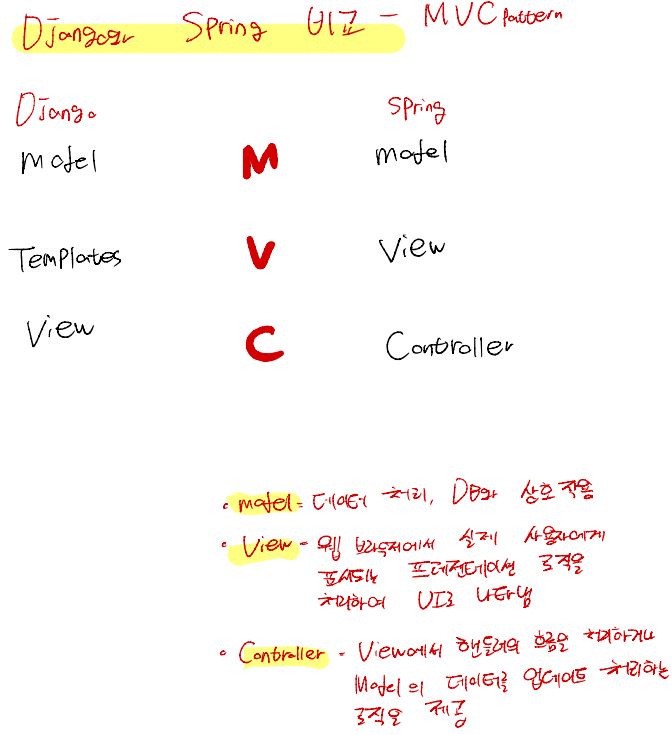 Django와 Spring 비교 - MVC pattern
Django Spring
Model M Model
Templates V View
View C Controller
• Model - 데이터 처리, DB와 상호 작용
• View - 웹 브라우저에서 실제 사용자에게
표시되는 프레젠테이션 로직을
처리하여 UI로 나타냄
• Controller - View에서 핸들러의 흐름을 처리하거나
Model의 데이터를 업데이트 처리하는
로직을 제공